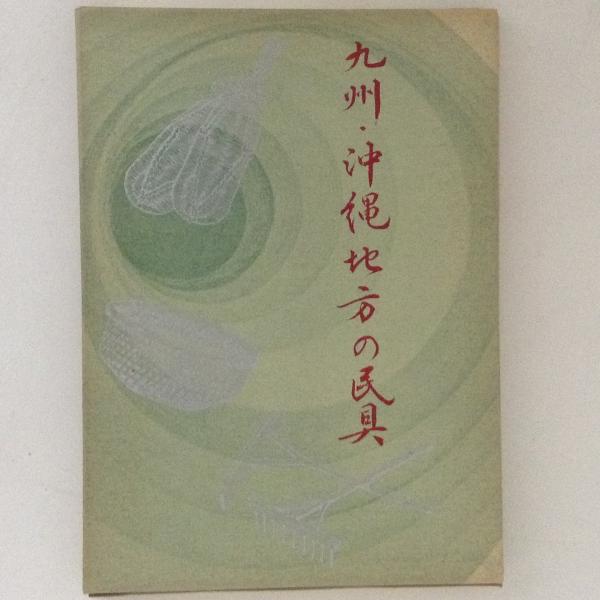 九州・沖縄地方の民具